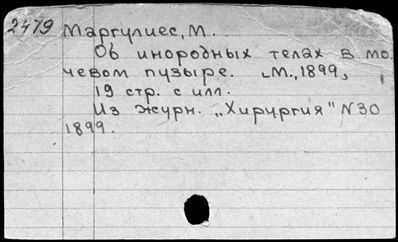 2479 Маргулиес, М.
Об инородных телах в мо-
чевом пузыре. М., 1899,
19 стр. с илл.
Из журн. „Хирургия" N30
1899.